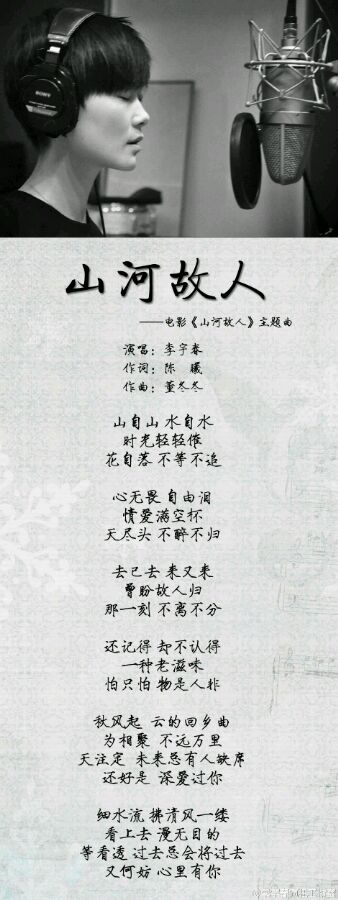 SONY
山河故人
——电影《山河故人》主题曲
演唱：李宇春
作词：陈 曦
作曲：董冬冬
山自山 水自水
时光轻轻催
花自落 不等不追
心无畏 自由泪
情爱满空杯
天尽头 不醉不归
去已去 来又来
曾盼故人归
那一刻 不离不分
还记得 却不认得
一种老滋味
怕只怕 物是人非
秋风起 云的回乡曲
为相聚 不远万里
天注定 未来总有人缺席
还好是 深爱过你
细水流 拂清风一缕
看上去 漫无目的
等看透 过去总会将过去
又何妨 心里有你